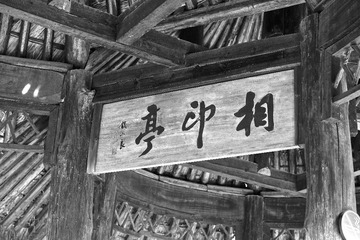 相印亭